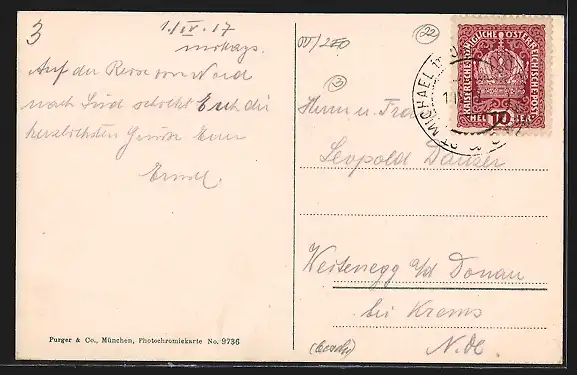 3
1./IV. 17
mittags.
Auf der Reise von Nord
nach Süd schickt Euch die
herzlichsten Grüße Euer
Ernst.
Purger & Co., München, Photochromiekarte No. 9736
22
3
KAISERLICHE KÖNIGLICHE ÖSTERREICHISCHE POST
HELLER 10 HELLER
ST. MICHAEL
Herrn u. Frau
Leopold Danzer
Weitenegg a/d Donau
bei Krems
N.Oe.